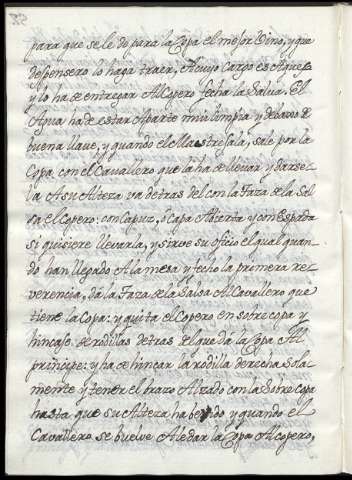 para que se le dé para la Copa el mejor Vino, y que
despensero lo haga traer, A cuyo Cargo es Aquesto
y lo ha de entregar Al Copero fecha la Salva, El
Agua ha de estar Aparte mui limpia y debaxo de
buena llave, y quando el Maestresala, sale por la
Copa con el Cavallero que la ha de llevar y darse-
la A su Alteza va detras del con la Taza de la Sal
va el Copero, con Capuz, ó capa Abierta y con Espada
si quisiere llevarla, y sirve su oficio el qual quan
do han llegado A la mesa y fecho la primera re-
verencia, dá la Taza de la Salva Al Cavallero que
tiene la Copa: y quita el Copero en sobre copa y
hincase de rodillas detras de el que dá la Copa Al
principe: y ha de hincar la rodilla derecha sola
mente y tener el brazo Alzado con la Sobre Copa
hasta que su Alteza ha bevido y quando el
Cavallero se buelve A le dar la Copa Al copero,